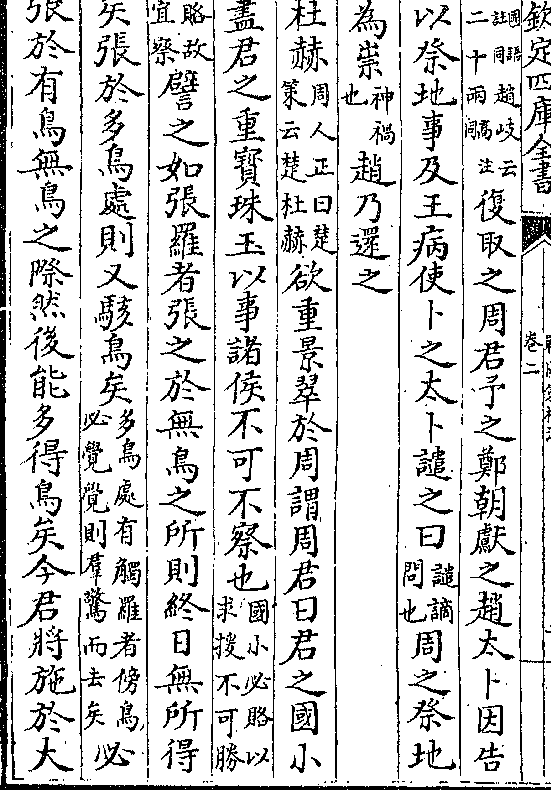 欽定四庫全書
卷二
國語註同趙岐云二十兩高注復取之周君予之鄭朝獻之趙太卜因告
以祭地事及王病使卜之太卜譴之曰譴謫問也周之祭地
為祟神禍也趙乃還之
杜赫周人正曰楚策云楚杜赫欲重景翠於周謂周君曰君之國小
盡君之重寶珠玉以事諸侯不可不察也國小必賂以求援不可勝
賂故宜察譬之如張羅者張之於無鳥之所則終日無所得
矣張於多鳥處則又駭鳥矣多鳥處有觸羅者傍鳥必覺覺則羣驚而去矣必
張於有鳥無鳥之際然後能多得鳥矣今君將施於大